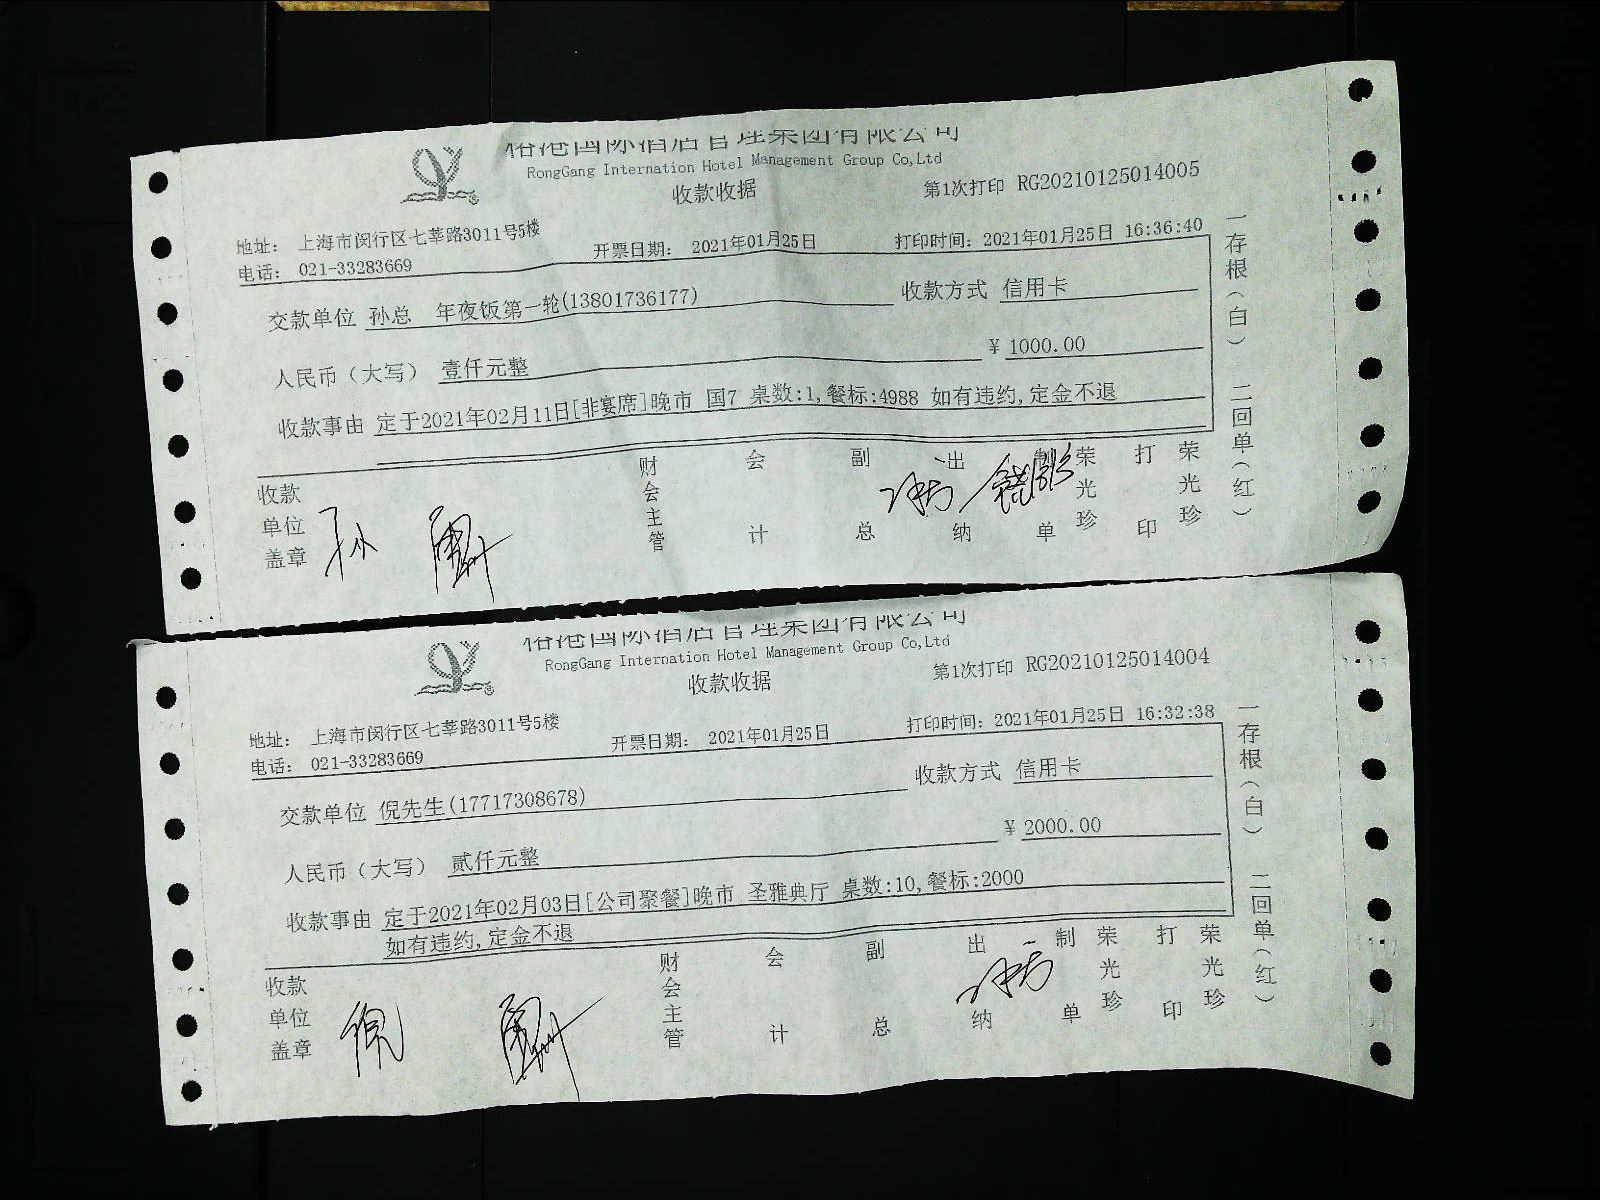 裕港国际酒店管理集团有限公司
RongGang Internation Hotel Management Group Co,Ltd
收款收据
第1次打印 RG20210125014005
地址： 上海市闵行区七莘路3011号5楼
电话： 021-33283669
开票日期： 2021年01月25日
打印时间：2021年01月25日 16:36:40
交款单位 孙总 年夜饭第一轮(13801736177)
收款方式 信用卡
人民币（大写） 壹仟元整
¥ 1000.00
收款事由 定于2021年02月11日[非宴席]晚市 国7 桌数:1,餐标:4988 如有违约,定金不退
收款单位盖章
孙
财会主管
会计
副总
出纳
制单
荣光珍
打印
荣光珍
一存根（白） 二回单（红）
裕港国际酒店管理集团有限公司
RongGang Internation Hotel Management Group Co,Ltd
收款收据
第1次打印 RG20210125014004
地址： 上海市闵行区七莘路3011号5楼
电话： 021-33283669
开票日期： 2021年01月25日
打印时间：2021年01月25日 16:32:38
交款单位 倪先生(17717308678)
收款方式 信用卡
人民币（大写） 贰仟元整
¥ 2000.00
收款事由 定于2021年02月03日[公司聚餐]晚市 圣雅典厅 桌数:10,餐标:2000
如有违约,定金不退
收款单位盖章
倪
财会主管
会计
副总
出纳
制单
荣光珍
打印
荣光珍
一存根（白） 二回单（红）